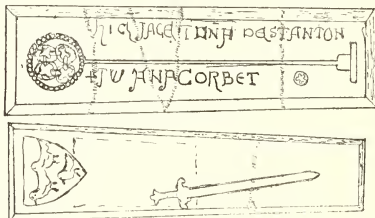 HIC JACET DNA DE STANTON
+JUHANA CORBET